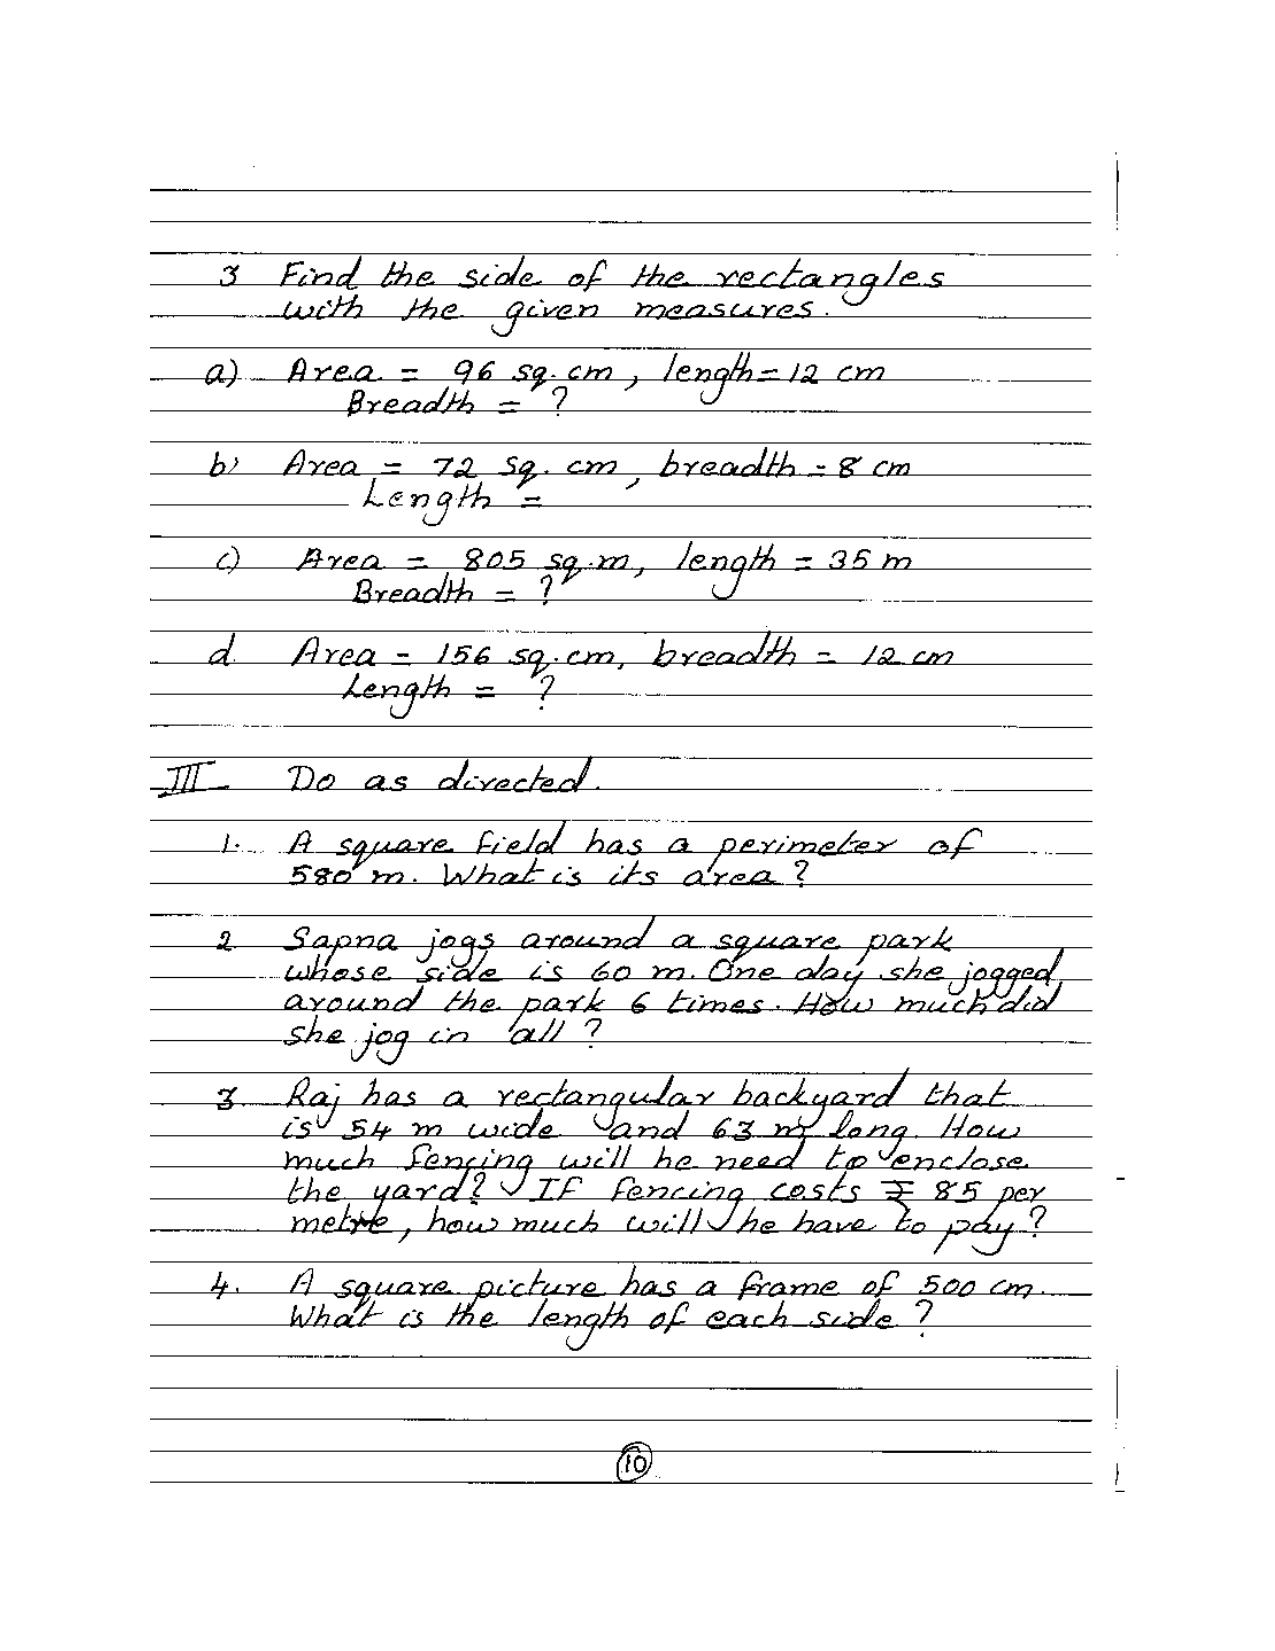 3 Find the side of the rectangles
with the given measures.
a) Area = 96 sq. cm, length = 12 cm
Breadth = ?
b) Area = 72 sq. cm, breadth = 8 cm
Length =
c) Area = 805 sq.m, length = 35 m
Breadth = ?
d. Area = 156 sq.cm, breadth = 12 cm
Length = ?
III Do as directed.
1. A square field has a perimeter of
580 m. What is its area?
2 Sapna jogs around a square park
whose side is 60 m. One day she jogged
around the park 6 times. How much did
she jog in all?
3. Raj has a rectangular backyard that
is 54 m wide and 63 m long. How
much fencing will he need to enclose
the yard? If fencing costs ₹ 85 per
metre, how much will he have to pay?
4. A square picture has a frame of 500 cm.
What is the length of each side?
10